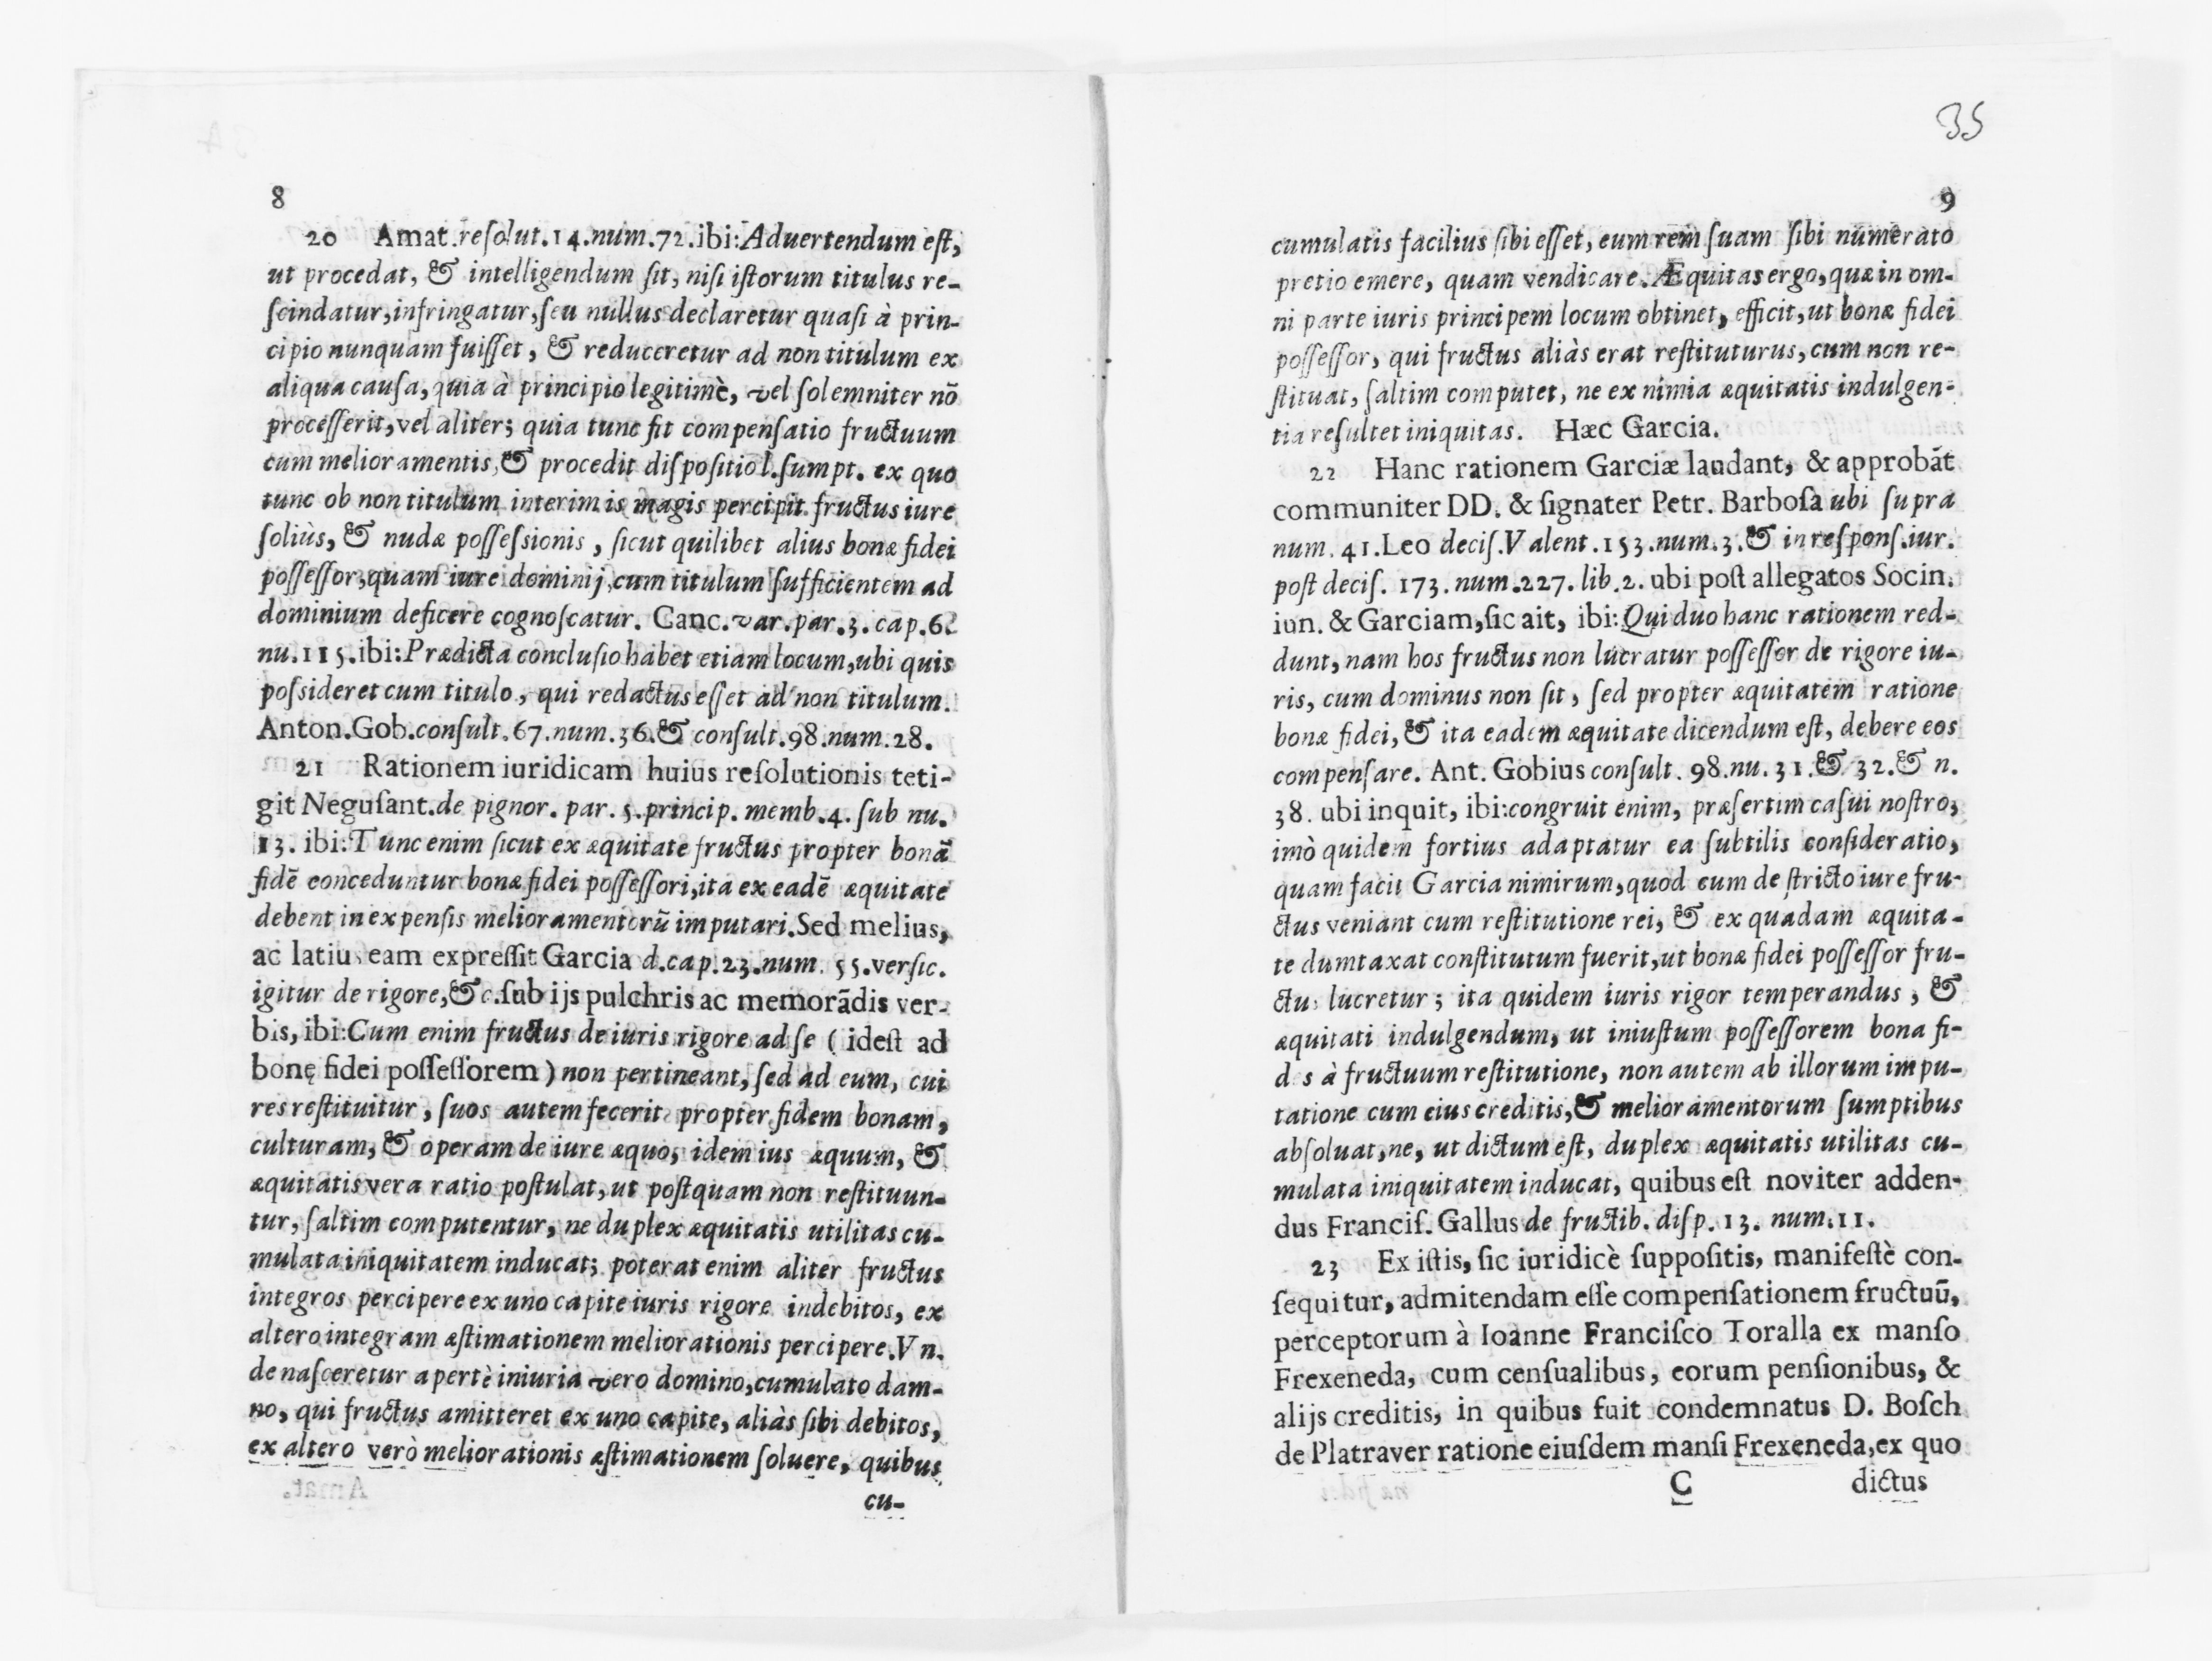 8
20 Amat.resolut.14.num.72.ibi:Aduertendum est,
ut procedat, & intelligendum sit, nisi istorum titulus re-
scindatur,infringatur,seu nullus declaretur quasi à prin-
cipio nunquam fuisset, & reduceretur ad non titulum ex
aliqua causa, quia à principio legitimè, vel solemniter nõ
processerit,vel aliter; quia tunc fit compensatio fructuum
cum melioramentis,& procedit dispositio l.sumpt. ex quo
tunc ob non titulum interim is magis percipit fructus iure
soliùs, & nudæ possessionis, sicut quilibet alius bonæ fidei
possessor,quam iure dominij,cum titulum sufficientem ad
dominium deficere cognoscatur. Canc.var.par.3.cap.6.
nu.115.ibi:Prædicta conclusio habet etiam locum,ubi quis
possideret cum titulo, qui redactus esset ad non titulum.
Anton.Gob.consult.67.num.36.& consult.98.num.28.
21 Rationem iuridicam huius resolutionis teti-
git Negusant.de pignor. par. 5.princip. memb.4. sub nu.
13. ibi:Tunc enim sicut ex æquitate fructus propter bonã
fidē conceduntur bonæ fidei possessori,ita ex eadē æquitate
debent in expensis melioramentorũ imputari.Sed melius,
ac latius eam expressit Garcia d.cap.23.num. 55.versic.
igitur de rigore,&c.sub ijs pulchris ac memorãdis ver-
bis, ibi:Cum enim fructus de iuris rigore ad se ( idest ad
bonę fidei possessorem ) non pertineant, sed ad eum, cui
res restituitur, suos autem fecerit propter fidem bonam,
culturam, & operam de iure æquo, idem ius æquum, &
æquitatis vera ratio postulat, ut postquam non restituun-
tur, saltim computentur, ne duplex æquitatis utilitas cu-
mulata iniquitatem inducat; poterat enim aliter fructus
integros percipere ex uno capite iuris rigore indebitos, ex
altero integram æstimationem meliorationis percipere.Vn.
de nasceretur apertè iniuria vero domino,cumulato dam-
no, qui fructus amitteret ex uno capite, aliàs sibi debitos,
ex altero verò meliorationis æstimationem soluere, quibus
cu-
35
9
cumulatis facilius sibi esset, eum rem suam sibi numerato
pretio emere, quam vendicare. Æquitas ergo, quæ in om-
ni parte iuris principem locum obtinet, efficit, ut bonæ fidei
possessor, qui fructus aliàs erat restituturus, cum non re-
stituat, saltim computet, ne ex nimia æquitatis indulgen-
tia resultet iniquitas. Hæc Garcia.
22 Hanc rationem Garciæ laudant, & approbãt
communiter DD. & signater Petr. Barbosa ubi supra
num. 41.Leo decis.Valent.153.num.3.& in respons.iur.
post decis. 173.num.227. lib.2. ubi post allegatos Socin.
iun. & Garciam,sic ait, ibi:Qui duo hanc rationem red-
dunt, nam hos fructus non lucratur possessor de rigore iu-
ris, cum dominus non sit, sed propter æquitatem ratione
bonæ fidei, & ita eadem æquitate dicendum est, debere eos
compensare. Ant. Gobius consult. 98.nu. 31.& 32.& n.
38. ubi inquit, ibi:congruit enim, præsertim casui nostro,
imò quidem fortius adaptatur ea subtilis consideratio,
quam facit Garcia nimirum,quod cum de stricto iure fru-
ctus veniant cum restitutione rei, & ex quadam æquita-
te dumtaxat constitutum fuerit,ut bonæ fidei possessor fru-
ctus lucretur; ita quidem iuris rigor temperandus, &
æquitati indulgendum, ut iniustum possessorem bona fi-
d s à fructuum restitutione, non autem ab illorum impu-
tatione cum eius creditis,& melioramentorum sumptibus
absoluat,ne, ut dictum est, duplex æquitatis utilitas cu-
mulata iniquitatem inducat, quibus est noviter adden-
dus Francis. Gallus de fructib. disp. 13. num.11.
23 Ex istis, sic iuridicè suppositis, manifestè con-
sequitur, admitendam esse compensationem fructuũ,
perceptorum à Ioanne Francisco Toralla ex manso
Frexeneda, cum censualibus, eorum pensionibus, &
alijs creditis, in quibus fuit condemnatus D. Bosch
de Platraver ratione eiusdem mansi Frexeneda,ex quo
C dictus